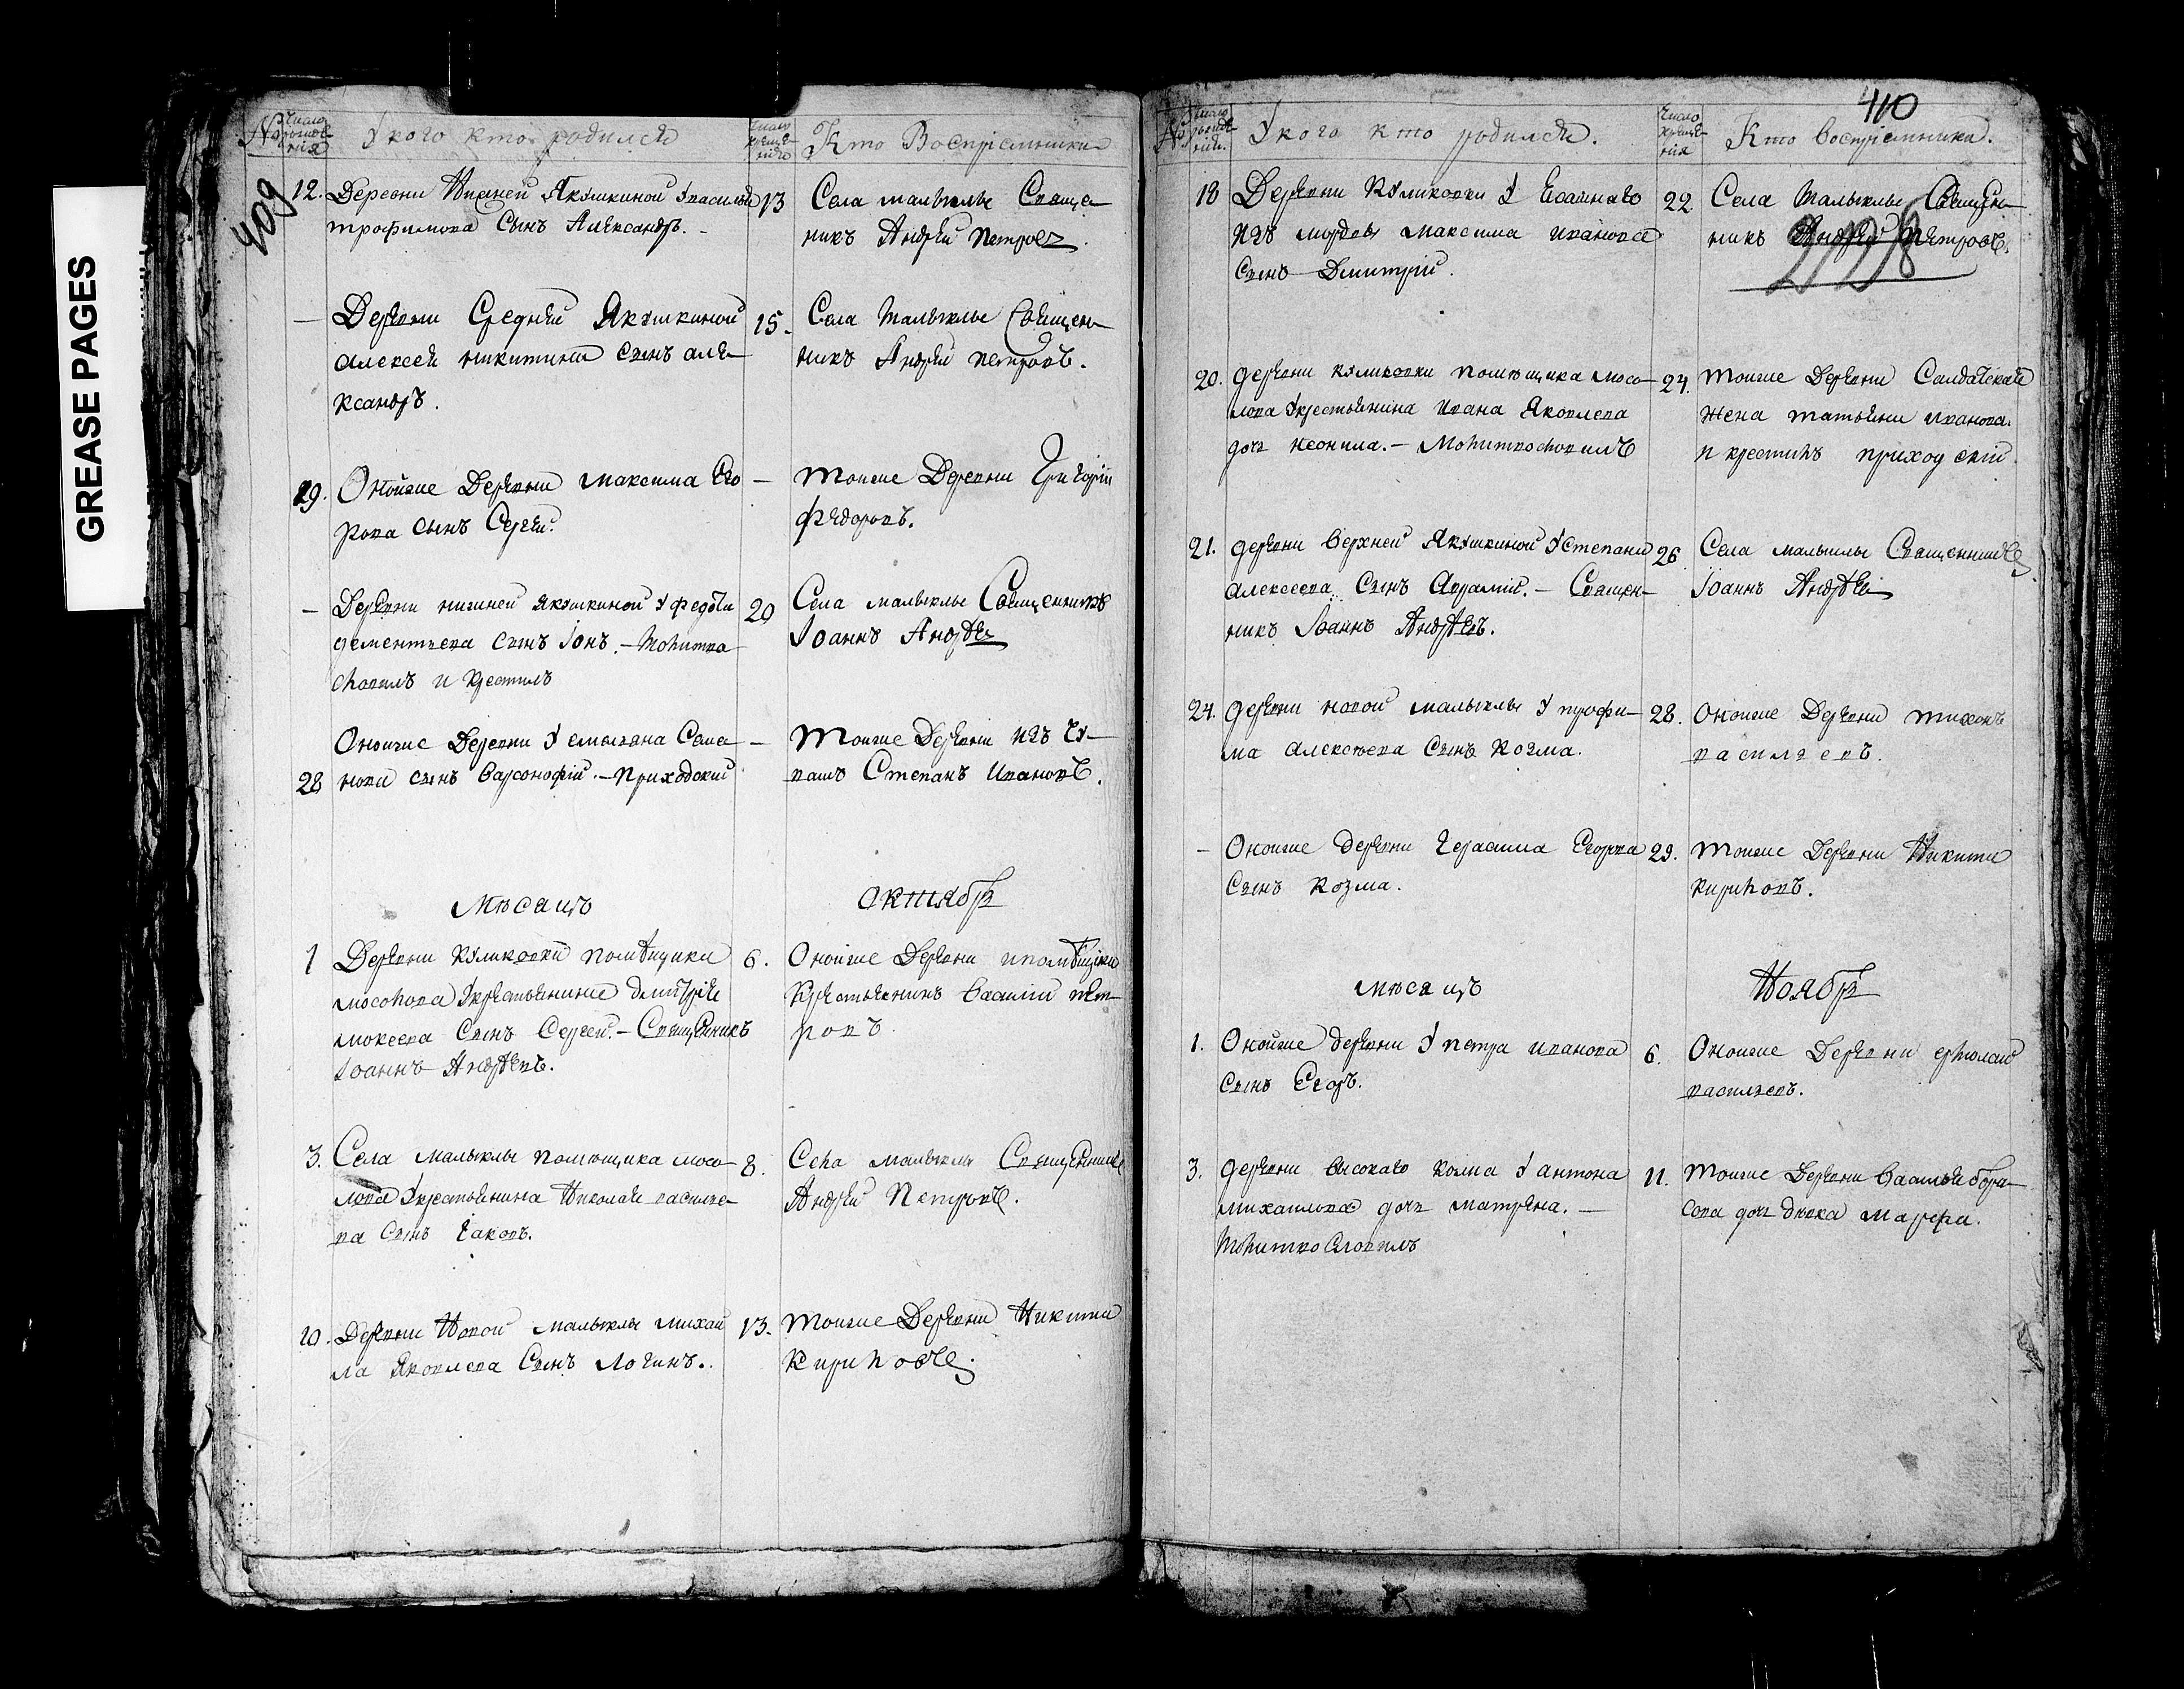 GREASE PAGES
409
№
Число рождения
У кого кто родился
Число крещения
Кто Воспріемники
12. Деревни Нижней Якушкиной у василья
трофимова Сынъ Александръ. –
13 Села малыклы Священ-
никъ Андрей Петровъ.
— Деревни Средней Якушкиной
алексея никитина сынъ але-
ксандръ.
15. Села Малыклы Священ-
никъ Андрей петровъ.
19. Оной же Деревни максима Его-
рова сынъ Сергей.
— Той же Деревни Григорій
федоровъ.
— Деревни нижней якушкиной у федота
дементьева сынъ Іонъ. – Молитво
словилъ и крестилъ
20 Села малыклы Священникъ
Іоаннъ Андреевъ
Оной же Деревни у емельяна Семе-
28 нова сынъ Варсонофій. – Приходский
— Той же Деревни изъ Чу-
вашъ Степанъ Ивановъ.
Мѣсяцъ
октябрь
1 Деревни куликовки помѣщика
мосолова у крестьянина дмитрія
мокеева сынъ Сергей. – Священникъ
Іоаннъ Андреевъ.
6. Оной же Деревни помѣщика
крестьянинъ Василій пет-
ровъ
3. Села малыклы помѣщика мосо-
лова у крестьянина Николая василье-
ва сынъ Іаковъ.
8. Села малыклы Священникъ
Андрей Петровъ.
10. Деревни Новой малыклы михаи-
ла Яковлева Сынъ Логинъ.
13. Той же Деревни Никита
Кириловъ.
410
№
Число рожденія.
У кого кто родился.
Число крещенія
Кто воспріемники.
18 Деревни куликовки у
изъ мордвы максима иванова
сынъ Дмитрій.
22. Села Малыклы Священ-
никъ Андрей петровъ.
20. деревни куликовки помѣщика мосо-
лова у крестьянина ивана Яковлева
дочь неонила. – Молитвословилъ
24. Той же Деревни Салдатская
жена татьяна иванова.
и крестилъ приходский.
21. деревни верхней якушкиной у степана
алексеева сынъ аврамій. – Священ-
никъ Іоаннъ Андреевъ.
26 Села малыклы Священникъ
Іоаннъ Андреевъ
24. деревни новой малыклы у трофи-
ма алексѣева сынъ козма.
28. Оной же Деревни тихонъ
васильевъ.
— Оной же деревни герасима Егорова
Сынъ козма.
29. Той же Деревни Никита
кириловъ.
мѣсяцъ
Ноябрь
1. Оной же деревни у петра иванова
сынъ Егоръ.
6. Оной же Деревни ермолай
васильевъ.
3. деревни высокаго колка у антона
михаилова дочь матрена. –
Молитвословилъ
11. Той же Деревни василья бори-
сова дочь девка марфа.